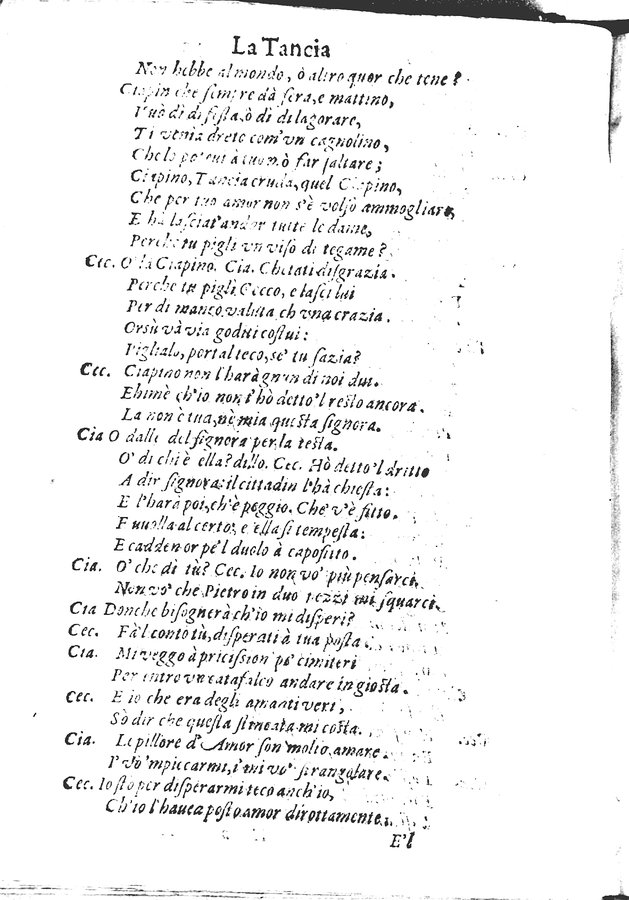 La Tancia
Non hebbe al mondo, ò altro quor che tene?
Ciapin che sempre dà sera, e mattino,
I'uò dì di festa, ò dì di lagorare,
Ti venia dreto com'vn cagnolino,
Che lo poteui à tuo mò far saltare;
Ciapino, Tancia cruda, quel Ciapino,
Che per tuo amor non s'è volsò ammogliare,
E hà lasciat'andar tutte le dame,
Perche tu pigli vn viso di tegame?
Cec. O' là Ciapino. Cia. Chetati disgrazia.
Perche tu pigli Cecco, e lasci lui
Per di manco valuta ch'vna crazia.
Orsù và via goditi costui:
Piglialo, portalteco, se' tu sazia?
Cec. Ciapino non l'harà gnun di noi dui.
Ehimè ch'io non t'hò detto'l resto ancora.
La non è tua, nè mia questa signora.
Cia O dalle del signora per la testa.
O' di chi è ella? dillo. Cec. Hò detto'l dritto
A dir signora: il cittadin l'hà chiesta:
E l'harà poi, ch'è peggio. Che v'è fitto.
E vuolla al certo; e ella si tempesta:
E cadden or pe'l duolo à capofitto.
Cia. O' che di tù? Cec. Io non vo' più pensarci,
Non vo' che Pietro in duo pezzi mi squarci.
Cia Donche bisognerà ch'io mi disperi?
Cec. Fà'l conto tù, disperati à tua posta.
Cia. Mi veggo à pricission pe' cimiteri
Per entro vn catafalco andare in giosta.
Cec. E io che era degli amanti veri,
Sò dir che questa stincata mi costa.
Cia. Le pillore d'Amor son molto amare.
I' vo' mpiccarmi, i' mi vo' strangolare.
Cec. Io sto per disperarmi teco anch'io,
Ch'io l'hauea posto amor dirottamente.
E'l